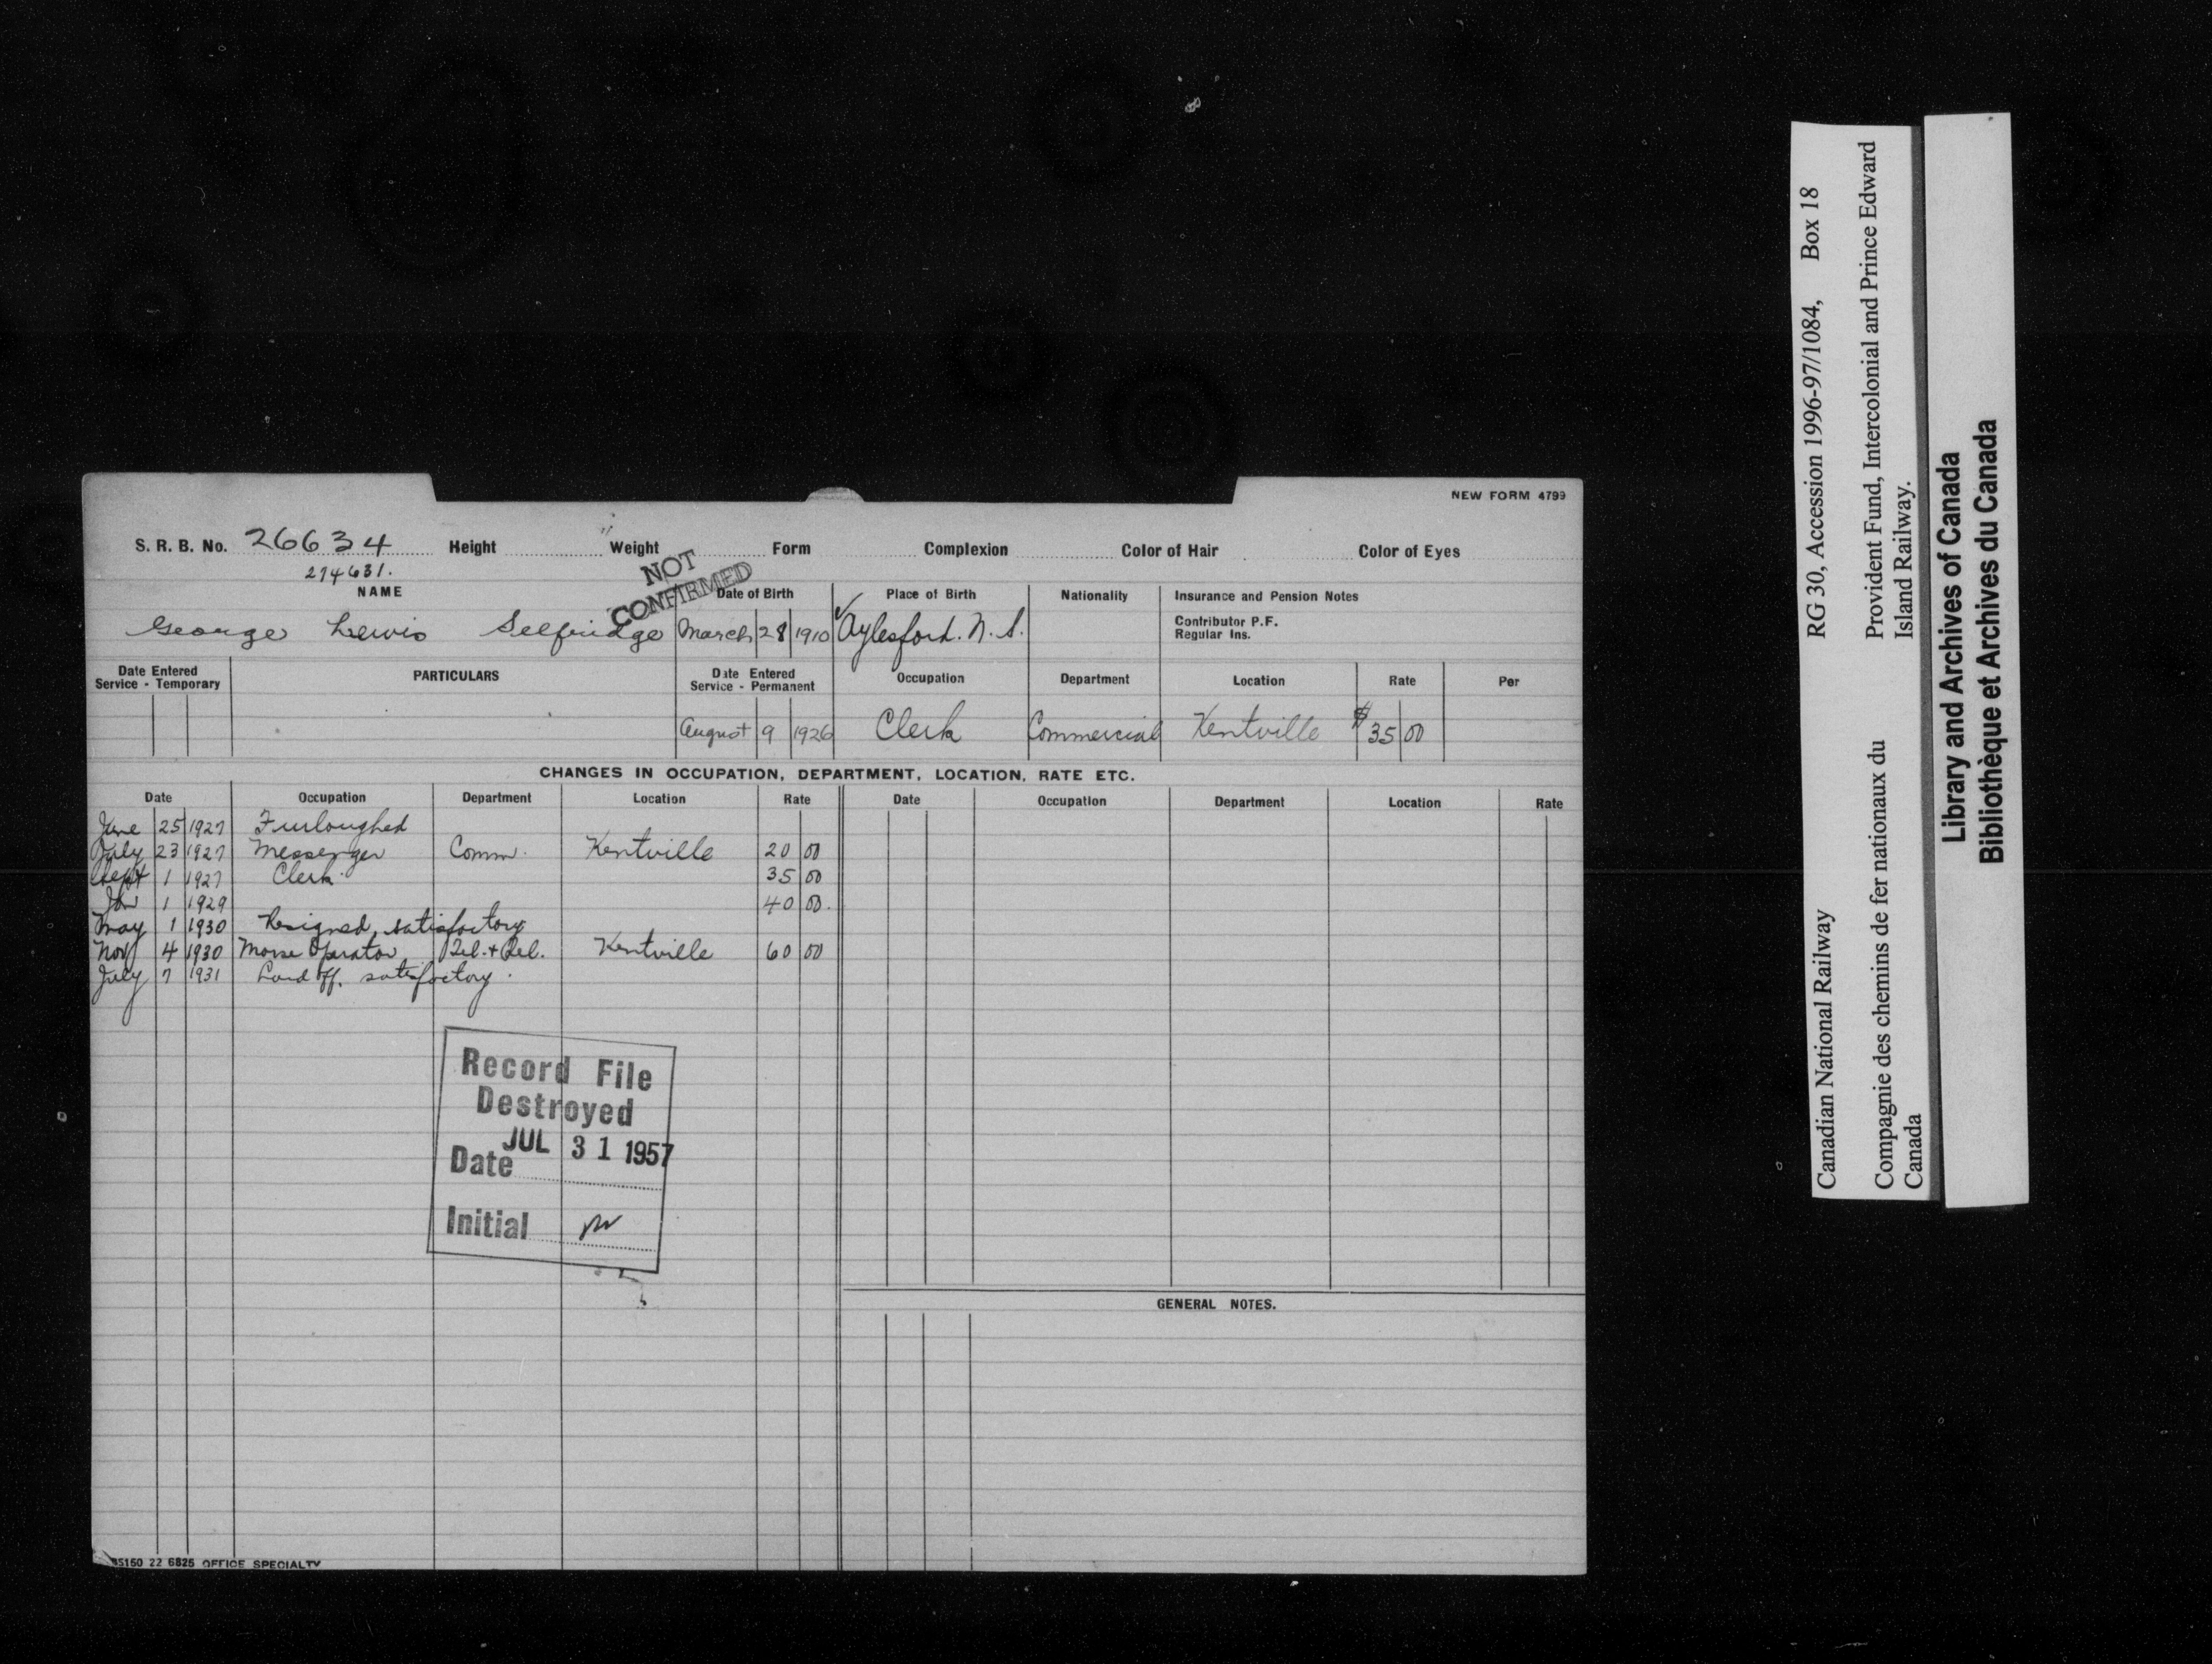 NEW FORM 4799
S. R. B. No. 26634 Height Weight Form Complexion Color of Hair Color of Eyes
274631.
NOT
CONFIRMED
NAME Date of Birth Place of Birth Nationality Insurance and Pension Notes
Contributor P.F.
Regular Ins.
George Lewis Selfridge March 28 1910 Aylesford. N. S.
Date Entered Service - Temporary PARTICULARS Date Entered Service - Permanent Occupation Department Location Rate Per
August 9 1926 Clerk Commercial Kentville $35 00
CHANGES IN OCCUPATION, DEPARTMENT, LOCATION, RATE ETC.
Date Occupation Department Location Rate Date Occupation Department Location Rate
June 25 1927 Furloughed
July 23 1927 Messenger Comm. Kentville 20 00
Sept 1 1927 Clerk 35 00
Jan 1 1929 40 00.
May 1 1930 Resigned, satisfactory
Nov 4 1930 Morse Operator Kentville 60 00
July 7 1931 Laid off. satisfactory.
Record File
Destroyed
JUL 31 1957
Date
Initial
GENERAL NOTES.
85150 22 6825 OFFICE SPECIALTY
Canadian National Railway RG 30, Accession 1996-97/1084, Box 18
Compagnie des chemins de fer nationaux du Canada
Provident Fund, Intercolonial and Prince Edward Island Railway.
Library and Archives of Canada
Bibliothèque et Archives du Canada